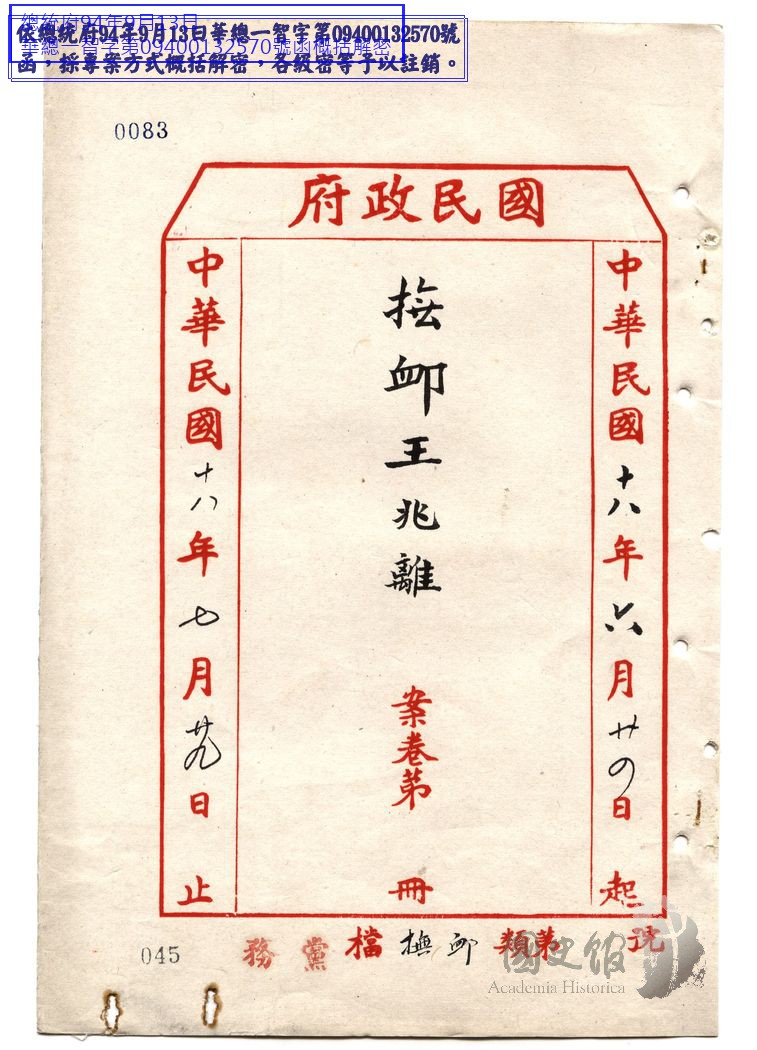 總統府94年9月13日
華總一智字第09400132570號函概括解密
依總統府94年9月13日華總一智字第09400132570號
函，採專案方式概括解密，各級密等予以註銷。
0083
國民政府
中華民國十八年六月廿四日起
撫卹王兆離 案卷第 冊
中華民國十八年七月廿九日止
號 第 類 撫卹 檔 黨務
045
國史館
Academia Historica